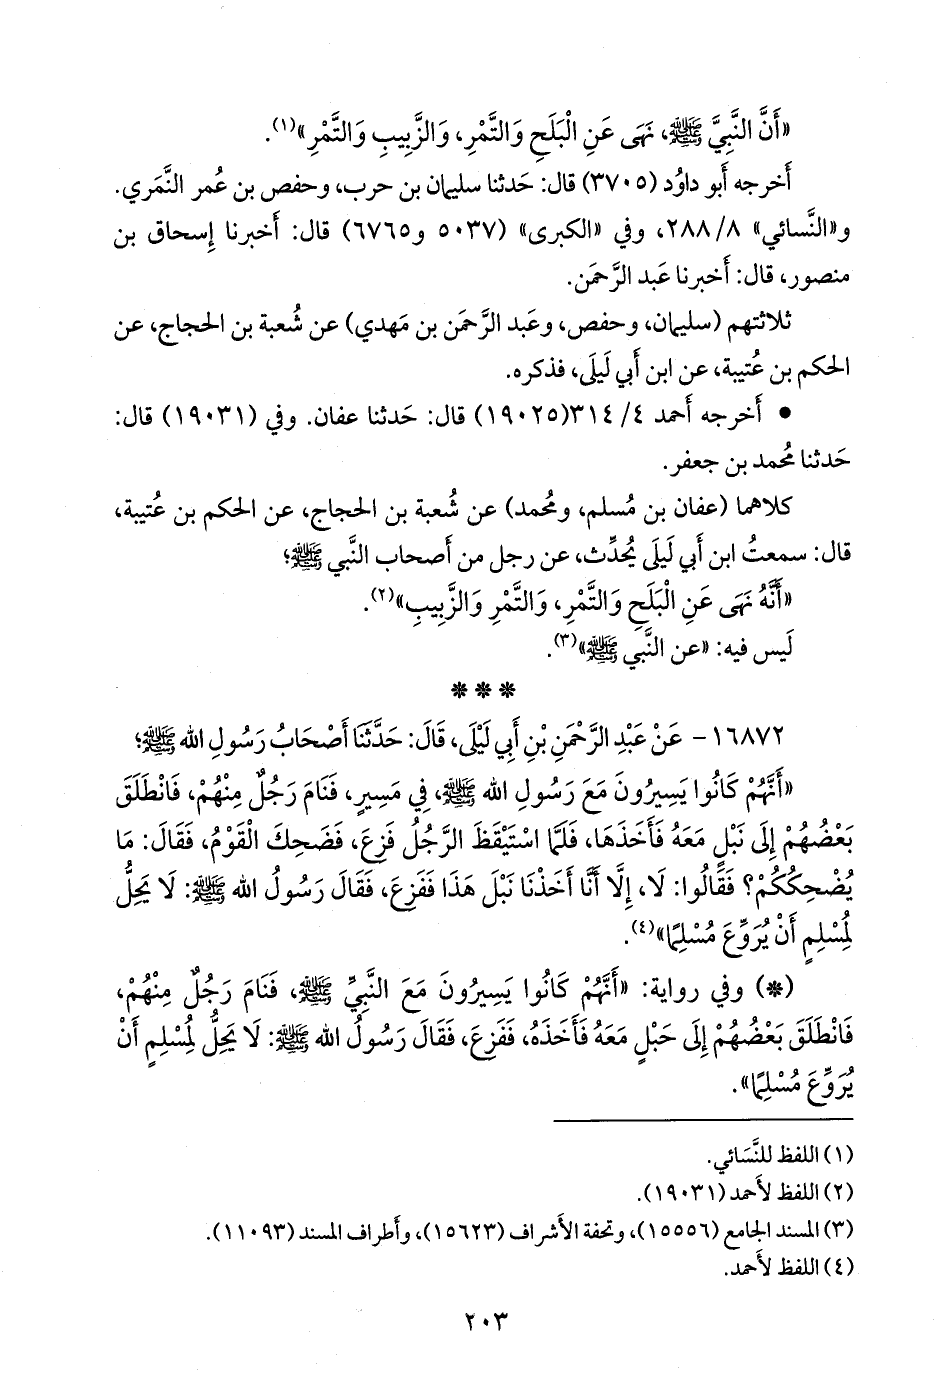 «أَنَّ النَّبِيَّ ﷺ، نَهَى عَنِ الْبَلَحِ وَالتَّمْرِ، وَالزَّبِيبِ وَالتَّمْرِ»(١).
أَخرجه أَبو داوُد (٣٧٠٥) قال: حَدثنا سليمان بن حرب، وحفص بن عُمر النَّمَري.
و«النَّسائي» ٨/ ٢٨٨، وفي «الكبرى» (٥٠٣٧ و٦٧٦٥) قال: أَخبرنا إِسحاق بن
منصور، قال: أَخبرنا عَبد الرَّحمَن.
ثلاثتهم (سليمان، وحفص، وعَبد الرَّحمَن بن مَهدي) عن شُعبة بن الحجاج، عن
الحكم بن عُتيبة، عن ابن أَبي لَيلَى، فذكره.
• أَخرجه أَحمد ٤/ ٣١٤(١٩٠٢٥) قال: حَدثنا عفان. وفي (١٩٠٣١) قال:
حَدثنا مُحمد بن جعفر.
كلاهما (عفان بن مُسلم، ومُحمد) عن شُعبة بن الحجاج، عن الحكم بن عُتيبة،
قال: سمعتُ ابن أَبي لَيلَى يُحدِّث، عن رجل من أَصحاب النَّبي ﷺ؛
«أَنَّهُ نَهَى عَنِ الْبَلَحِ وَالتَّمْرِ، وَالتَّمْرِ وَالزَّبِيبِ»(٢).
لَيس فيه: «عن النَّبي ﷺ»(٣).
* * *
١٦٨٧٢- عَنْ عَبْدِ الرَّحْمَنِ بْنِ أَبِي لَيْلَى، قَالَ: حَدَّثَنَا أَصْحَابُ رَسُولِ الله ﷺ؛
«أَنَّهُمْ كَانُوا يَسِيرُونَ مَعَ رَسُولِ الله ﷺ، فِي مَسِيرٍ، فَنَامَ رَجُلٌ مِنْهُمْ، فَانْطَلَقَ
بَعْضُهُمْ إِلَى نَبْلٍ مَعَهُ فَأَخَذَهَا، فَلَمَّا اسْتَيْقَظَ الرَّجُلُ فَزِعَ، فَضَحِكَ الْقَوْمُ، فَقَالَ: مَا
يُضْحِكُكُمْ؟ فَقَالُوا: لَا، إِلَّا أَنَّا أَخَذْنَا نَبْلَ هَذَا فَفَزِعَ، فَقَالَ رَسُولُ الله ﷺ: لَا يَحِلُّ
لِمُسْلِمٍ أَنْ يُرَوِّعَ مُسْلِمًا»(٤).
(*) وفي رواية: «أَنَّهُمْ كَانُوا يَسِيرُونَ مَعَ النَّبِيِّ ﷺ، فَنَامَ رَجُلٌ مِنْهُمْ،
فَانْطَلَقَ بَعْضُهُمْ إِلَى حَبْلٍ مَعَهُ فَأَخَذَهُ، فَفَزِعَ، فَقَالَ رَسُولُ الله ﷺ: لَا يَحِلُّ لِمُسْلِمٍ أَنْ
يُرَوِّعَ مُسْلِمًا».
(١) اللفظ للنَّسَائي.
(٢) اللفظ لأَحمد (١٩٠٣١).
(٣) المسند الجامع (١٥٥٥٦)، وتحفة الأَشراف (١٥٦٢٣)، وأَطراف المسند (١١٠٩٣).
(٤) اللفظ لأَحمد.
٢٠٣